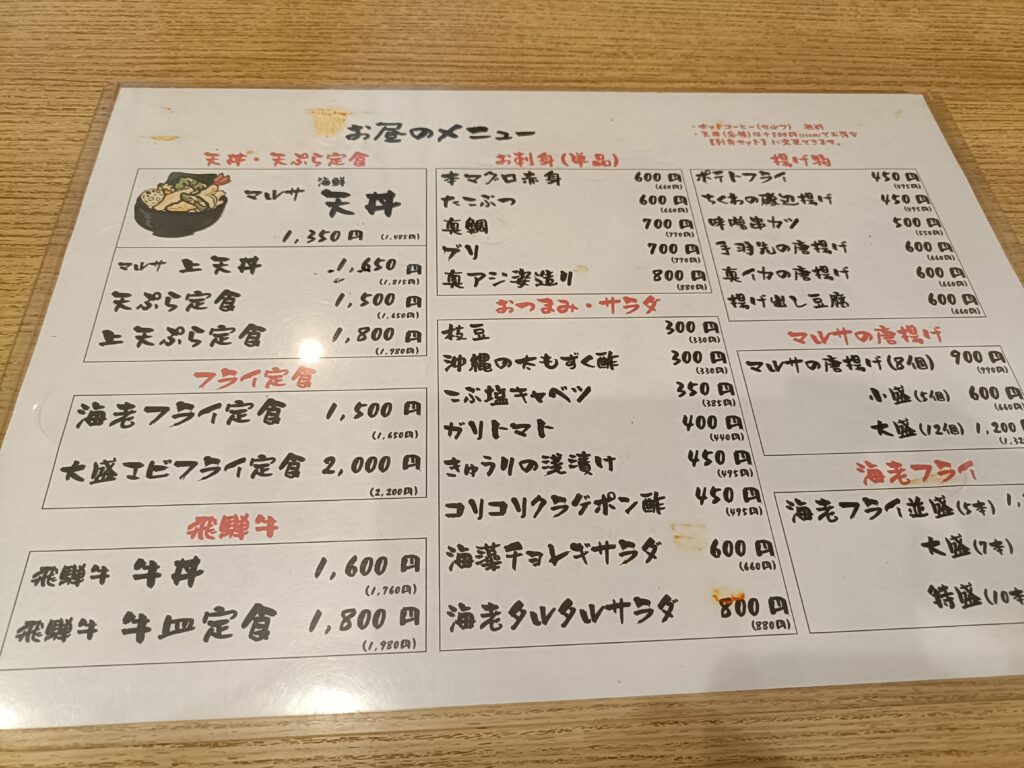 お昼のメニュー
・ホットコーヒー(セルフ) 無料
天丼・天ぷら定食
マルサ 海鮮 天丼
1,350円 (1,485円)
マルサ 上天丼 1,650円 (1,815円)
天ぷら定食 1,500円 (1,650円)
上天ぷら定食 1,800円 (1,980円)
フライ定食
海老フライ定食 1,500円 (1,650円)
大盛エビフライ定食 2,000円 (2,200円)
飛騨牛
飛騨牛 牛丼 1,600円 (1,760円)
飛騨牛 牛皿定食 1,800円 (1,980円)
お刺身(単品)
本マグロ赤身 600円 (660円)
たこぶつ 600円 (660円)
真鯛 700円 (770円)
ブリ 700円 (770円)
真アジ姿造り 800円 (880円)
おつまみ・サラダ
枝豆 300円 (330円)
沖縄の太もずく酢 300円 (330円)
こぶ塩キャベツ 350円 (385円)
ガリトマト 400円 (440円)
きゅうりの浅漬け 450円 (495円)
コリコリクラゲポン酢 450円 (495円)
海藻チョレギサラダ 600円 (660円)
海老タルタルサラダ 800円 (880円)
揚げ物
ポテトフライ 450円 (495円)
ちくわの磯辺揚げ 450円 (495円)
味噌串カツ 500円 (550円)
手羽先の唐揚げ 600円 (660円)
真イカの唐揚げ 600円 (660円)
揚げ出し豆腐 600円 (660円)
マルサの唐揚げ
マルサの唐揚げ(8個) 900円 (990円)
小盛(5個) 600円 (660円)
大盛(12個) 1,200
海老フライ
海老フライ並盛(5本)
大盛(7本)
特盛(10本